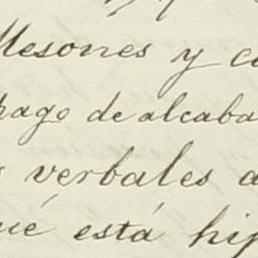 Mesones y c
pago de alcaba
s verbales a
ué está hip